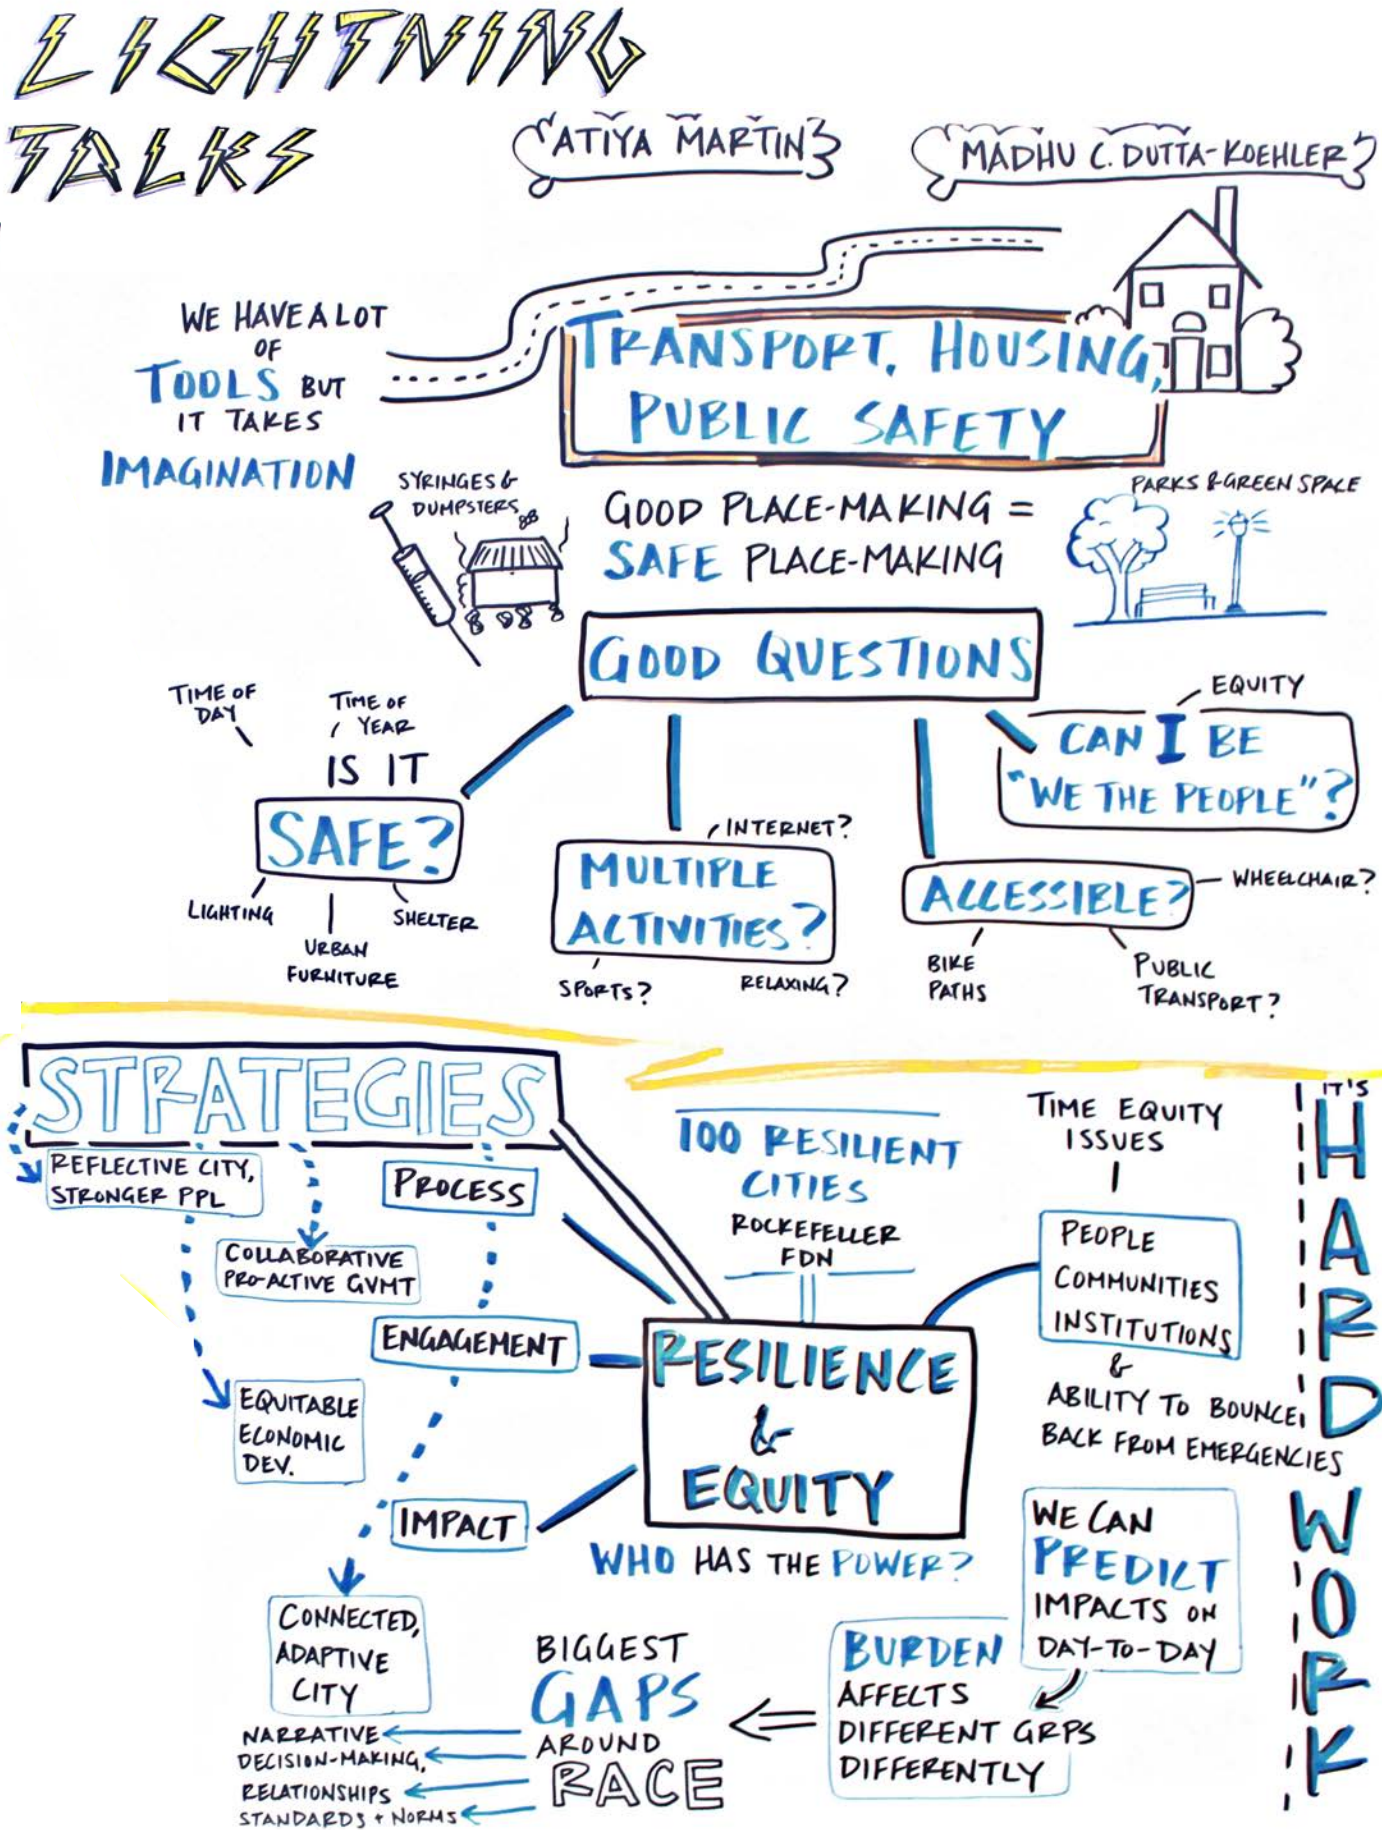 LIGHTNING
TALKS
ATIYA MARTIN
MADHU C. DUTTA-KOEHLER
WE HAVE A LOT
OF
TOOLS BUT
IT TAKES
IMAGINATION
TRANSPORT, HOUSING,
PUBLIC SAFETY
SYRINGES &
DUMPSTERS
GOOD PLACE-MAKING =
SAFE PLACE-MAKING
PARKS & GREEN SPACE
GOOD QUESTIONS
TIME OF
DAY
TIME OF
YEAR
IS IT
SAFE?
LIGHTING
URBAN
FURNITURE
SHELTER
INTERNET?
MULTIPLE
ACTIVITIES?
SPORTS?
RELAXING?
ACCESSIBLE?
WHEELCHAIR?
BIKE
PATHS
PUBLIC
TRANSPORT?
EQUITY
CAN I BE
"WE THE PEOPLE"?
STRATEGIES
REFLECTIVE CITY,
STRONGER PPL
COLLABORATIVE
PRO-ACTIVE GVMT
EQUITABLE
ECONOMIC
DEV.
PROCESS
ENGAGEMENT
IMPACT
CONNECTED,
ADAPTIVE
CITY
100 RESILIENT
CITIES
ROCKEFELLER
FDN
RESILIENCE
&
EQUITY
WHO HAS THE POWER?
TIME EQUITY
ISSUES
PEOPLE
COMMUNITIES
INSTITUTIONS
&
ABILITY TO BOUNCE
BACK FROM EMERGENCIES
WE CAN
PREDICT
IMPACTS ON
DAY-TO-DAY
BURDEN
AFFECTS
DIFFERENT GRPS
DIFFERENTLY
BIGGEST
GAPS
AROUND
RACE
NARRATIVE
DECISION-MAKING,
RELATIONSHIPS
STANDARDS + NORMS
IT'S
HARD
WORK